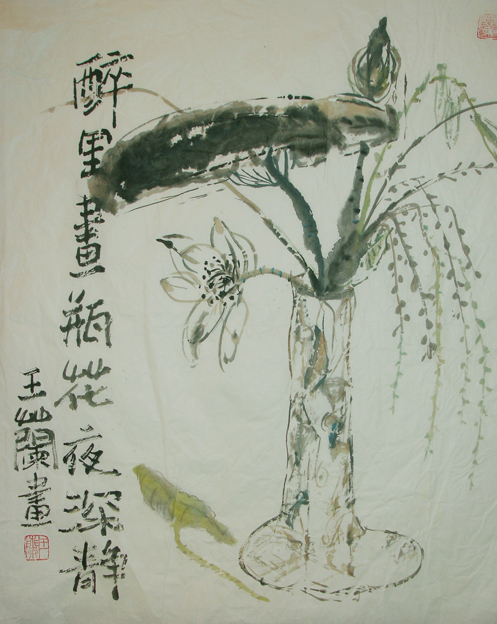 醉里畫瓶花夜深静
王蘭畫